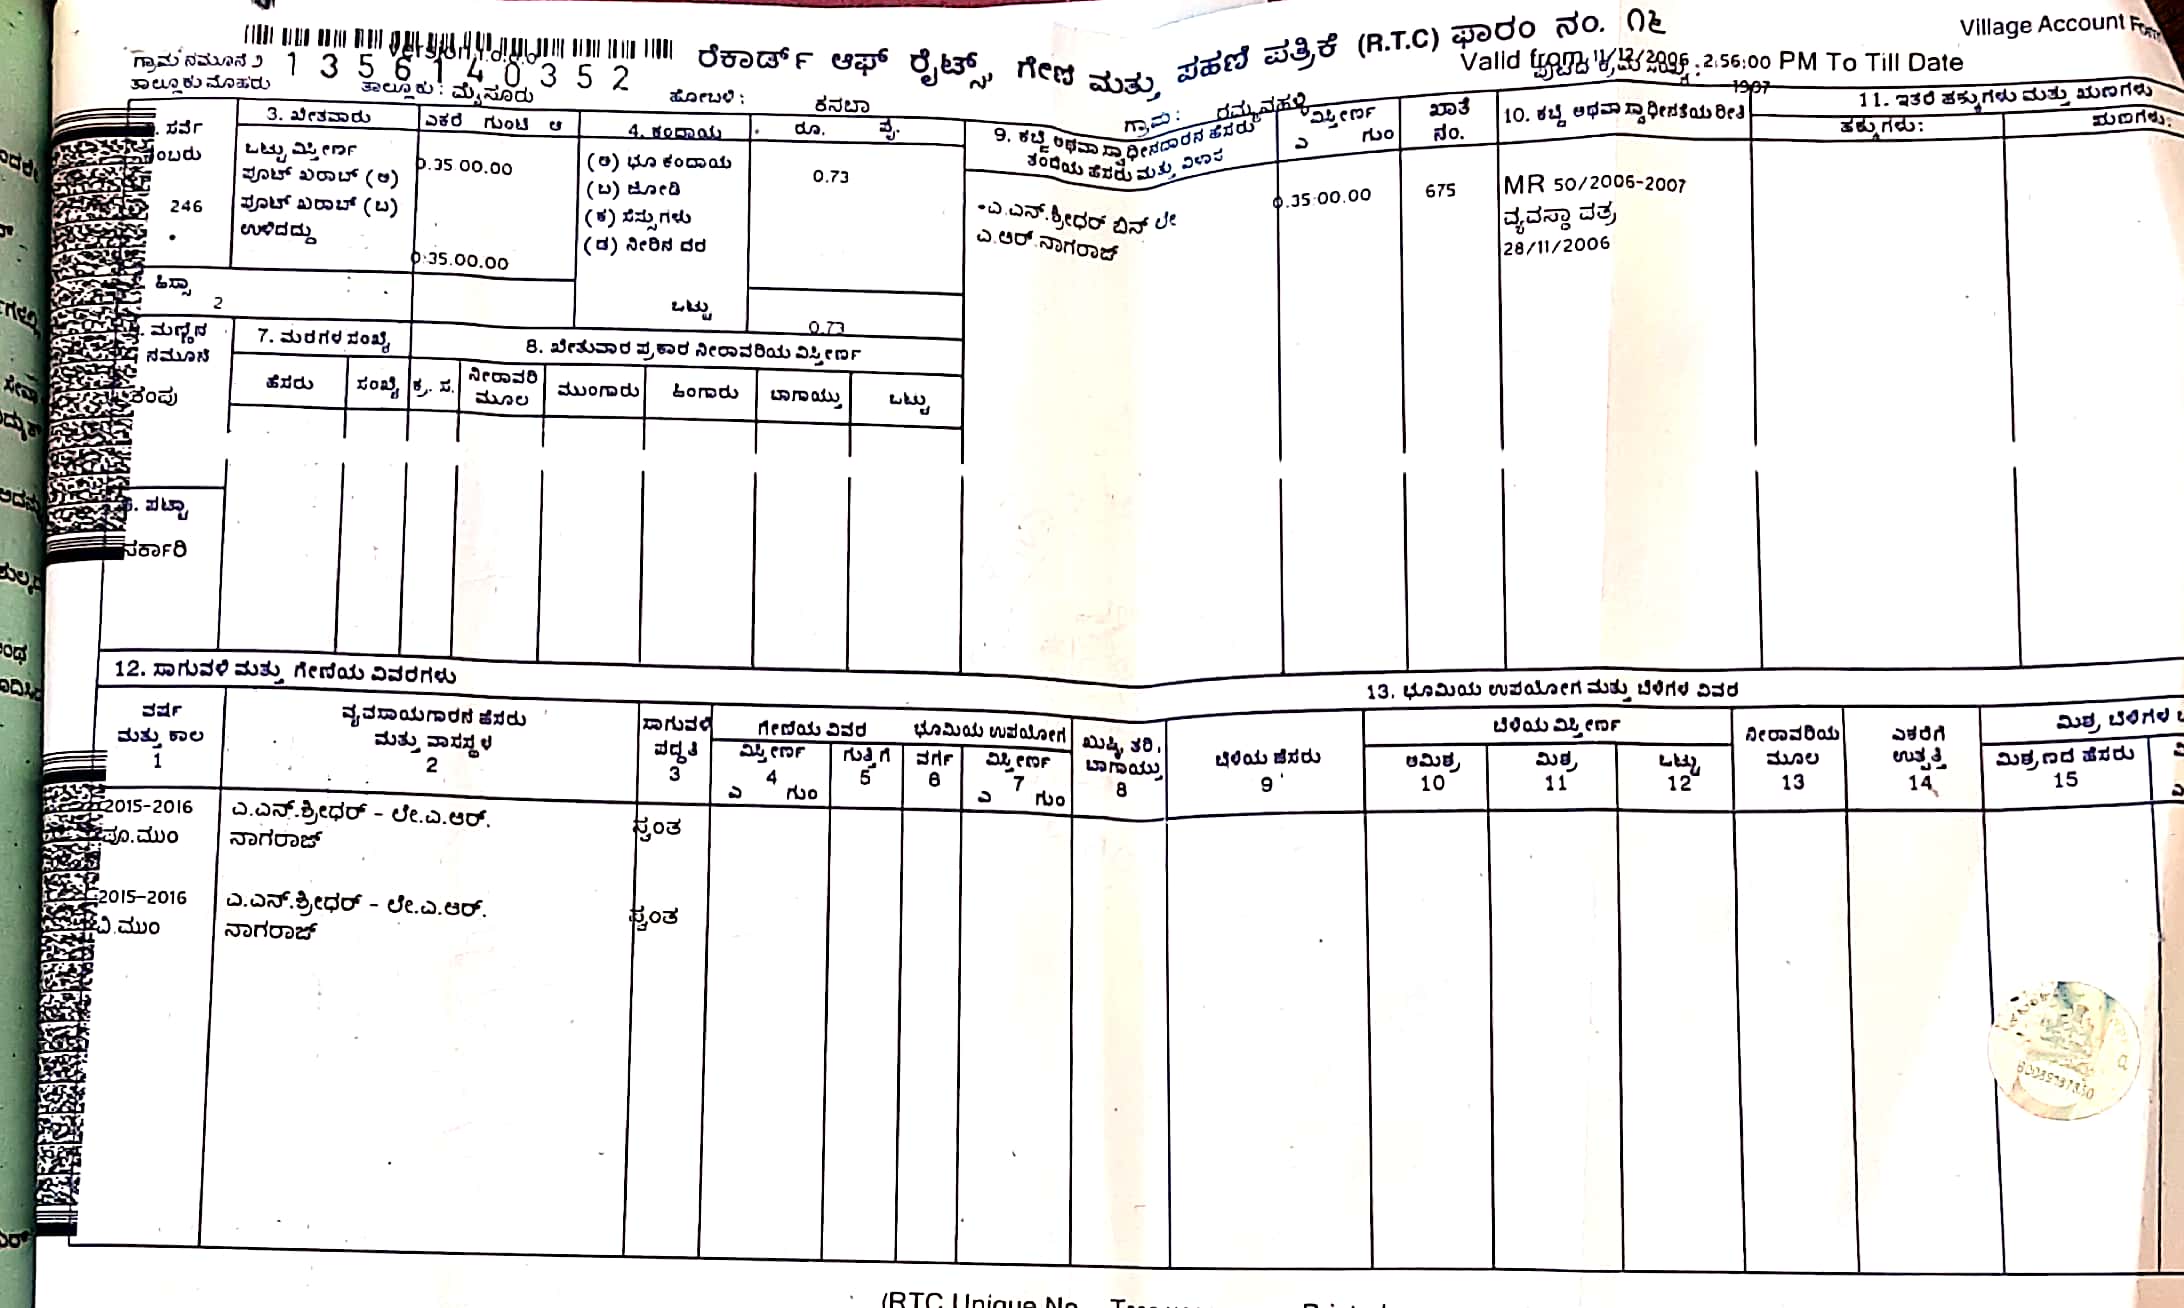 ರೆಕಾರ್ಡ್ ಆಫ್ ರೈಟ್ಸ್, ಗೇಣಿ ಮತ್ತು ಪಹಣಿ ಪತ್ರಿಕೆ (R.T.C) ಫಾರಂ ನಂ. ೧೬
Village Account
ಗ್ರಾಮ ನಮೂನೆ ೨
1 3 5 6 1 4 0 3 5 2
Valid from 11/12/2006 2:56:00 PM To Till Date
ತಾಲ್ಲೂಕು ಮೊಹರು
ತಾಲ್ಲೂಕು: ಮೈಸೂರು
ಹೋಬಳಿ:
ಕಸಬಾ
ಗ್ರಾಮ: ರಮ್ಮನಹಳ್ಳಿ
1907
ಸರ್ವೆ
ಂಬರು
246
ಹಿಸ್ಸಾ
2
3. ಖೇತವಾರು
ಎಕರೆ ಗುಂಟೆ ಆ
ಒಟ್ಟು ವಿಸ್ತೀರ್ಣ 0.35.00.00
ಪೂಟ್ ಖರಾಬ್ (ಅ)
ಪೂಟ್ ಖರಾಬ್ (ಬ)
ಉಳಿದದ್ದು
0.35.00.00
4. ಕಂದಾಯ
ರೂ. ಪೈ.
(ಅ) ಭೂ ಕಂದಾಯ 0.73
(ಬ) ಜೋಡಿ
(ಕ) ಸೆಸ್ಸುಗಳು
(ಡ) ನೀರಿನ ದರ
ಒಟ್ಟು
0.73
9. ಕಬ್ಜೆ ಅಥವಾ ಸ್ವಾಧೀನದಾರನ ಹೆಸರು
ತಂದೆಯ ಹೆಸರು ಮತ್ತು ವಿಳಾಸ
ವಿಸ್ತೀರ್ಣ
ಎ ಗುಂ
ಖಾತೆ
ನಂ.
10. ಕಬ್ಜೆ ಅಥವಾ ಸ್ವಾಧೀನತೆಯ ರೀತಿ
11. ಇತರೆ ಹಕ್ಕುಗಳು ಮತ್ತು ಋಣಗಳು
ಹಕ್ಕುಗಳು:
ಋಣಗಳು:
ಎ.ಎನ್.ಶ್ರೀಧರ್ ಬಿನ್ ಲೇ
ಎ.ಆರ್.ನಾಗರಾಜ್
0.35.00.00
675
MR 50/2006-2007
ವ್ಯವಸ್ಥಾ ಪತ್ರ
28/11/2006
ಮಣ್ಣಿನ
ನಮೂನೆ
ಕೆಂಪು
7. ಮರಗಳ ಸಂಖ್ಯೆ
ಹೆಸರು
ಸಂಖ್ಯೆ
8. ಖೇತುವಾರ ಪ್ರಕಾರ ನೀರಾವರಿಯ ವಿಸ್ತೀರ್ಣ
ಕ್ರ. ಸ.
ನೀರಾವರಿ
ಮೂಲ
ಮುಂಗಾರು
ಹಿಂಗಾರು
ಬಾಗಾಯ್ತು
ಒಟ್ಟು
ಪಟ್ಟಾ
ಸರ್ಕಾರಿ
12. ಸಾಗುವಳಿ ಮತ್ತು ಗೇಣಿಯ ವಿವರಗಳು
13. ಭೂಮಿಯ ಉಪಯೋಗ ಮತ್ತು ಬೆಳೆಗಳ ವಿವರ
ವರ್ಷ
ಮತ್ತು ಕಾಲ
1
ವ್ಯವಸಾಯಗಾರನ ಹೆಸರು
ಮತ್ತು ವಾಸಸ್ಥಳ
2
ಸಾಗುವಳಿ
ಪದ್ಧತಿ
3
ಗೇಣಿಯ ವಿವರ
ವಿಸ್ತೀರ್ಣ
4
ಎ ಗುಂ
ಗುತ್ತಿಗೆ
5
ಭೂಮಿಯ ಉಪಯೋಗ
ವರ್ಗ
6
ವಿಸ್ತೀರ್ಣ
7
ಎ ಗುಂ
ಖುಷ್ಕಿ, ತರಿ,
ಬಾಗಾಯ್ತು
8
ಬೆಳೆಯ ಹೆಸರು
9
ಬೆಳೆಯ ವಿಸ್ತೀರ್ಣ
ಅಮಿಶ್ರ
10
ಮಿಶ್ರ
11
ಒಟ್ಟು
12
ನೀರಾವರಿಯ
ಮೂಲ
13
ಎಕರೆಗೆ
ಉತ್ಪತ್ತಿ
14
ಮಿಶ್ರ ಬೆಳೆಗಳ
ಮಿಶ್ರಣದ ಹೆಸರು
15
2015-2016 ಎ.ಎನ್.ಶ್ರೀಧರ್ - ಲೇ.ಎ.ಆರ್. ಸ್ವಂತ
ಪೂ.ಮುಂ ನಾಗರಾಜ್
2015-2016 ಎ.ಎನ್.ಶ್ರೀಧರ್ - ಲೇ.ಎ.ಆರ್. ಸ್ವಂತ
ವಿ.ಮುಂ ನಾಗರಾಜ್
(RTC Unique No